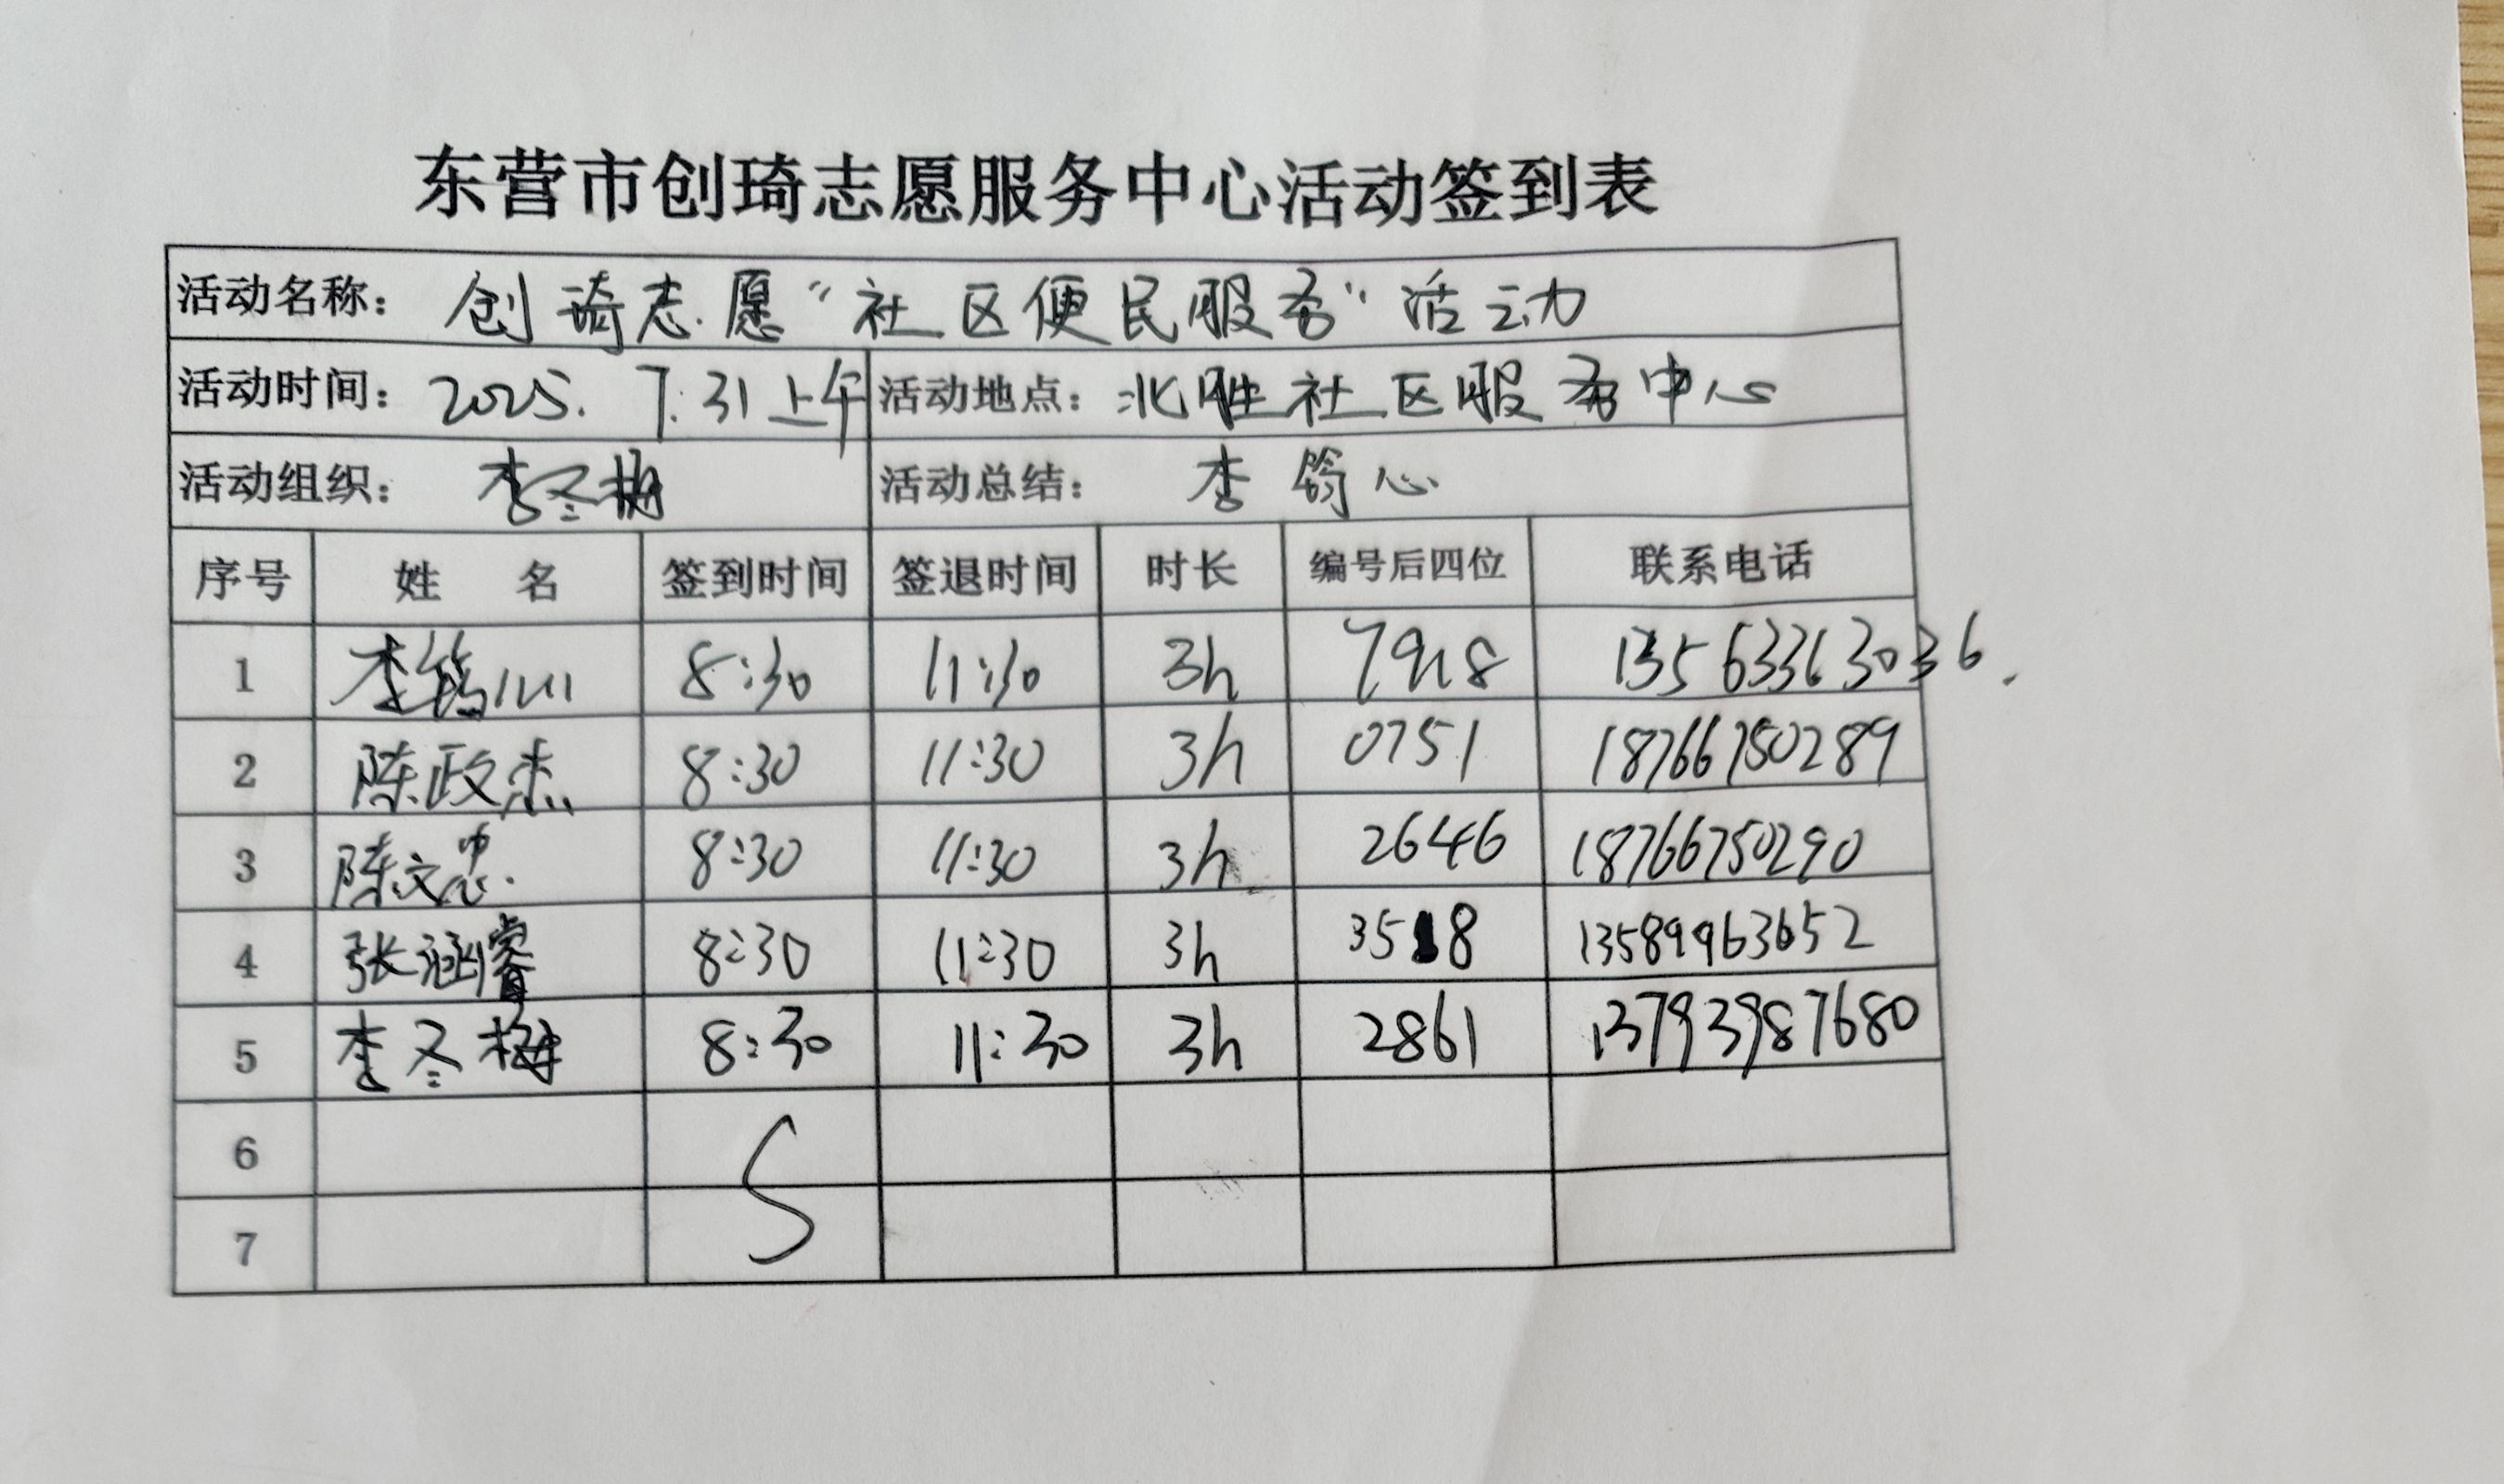 东营市创琦志愿服务中心活动签到表
活动名称： 创琦志愿“社区便民服务”活动
活动时间： 2025. 7.31上午 活动地点： 北胜社区服务中心
活动组织： 李冬梅 活动总结： 李筠心
序号 姓 名 签到时间 签退时间 时长 编号后四位 联系电话
1 李筠心 8:30 11:30 3h 13563363036.
2 陈政杰 8:30 11:30 3h 0751 18766750289
3 陈文忠. 8:30 11:30 3h 2646 18766750290
4 张涵睿 8:30 11:30 3h 3518 13589963652
5 李冬梅 8:30 11:30 3h 2861 13793987680
6
7